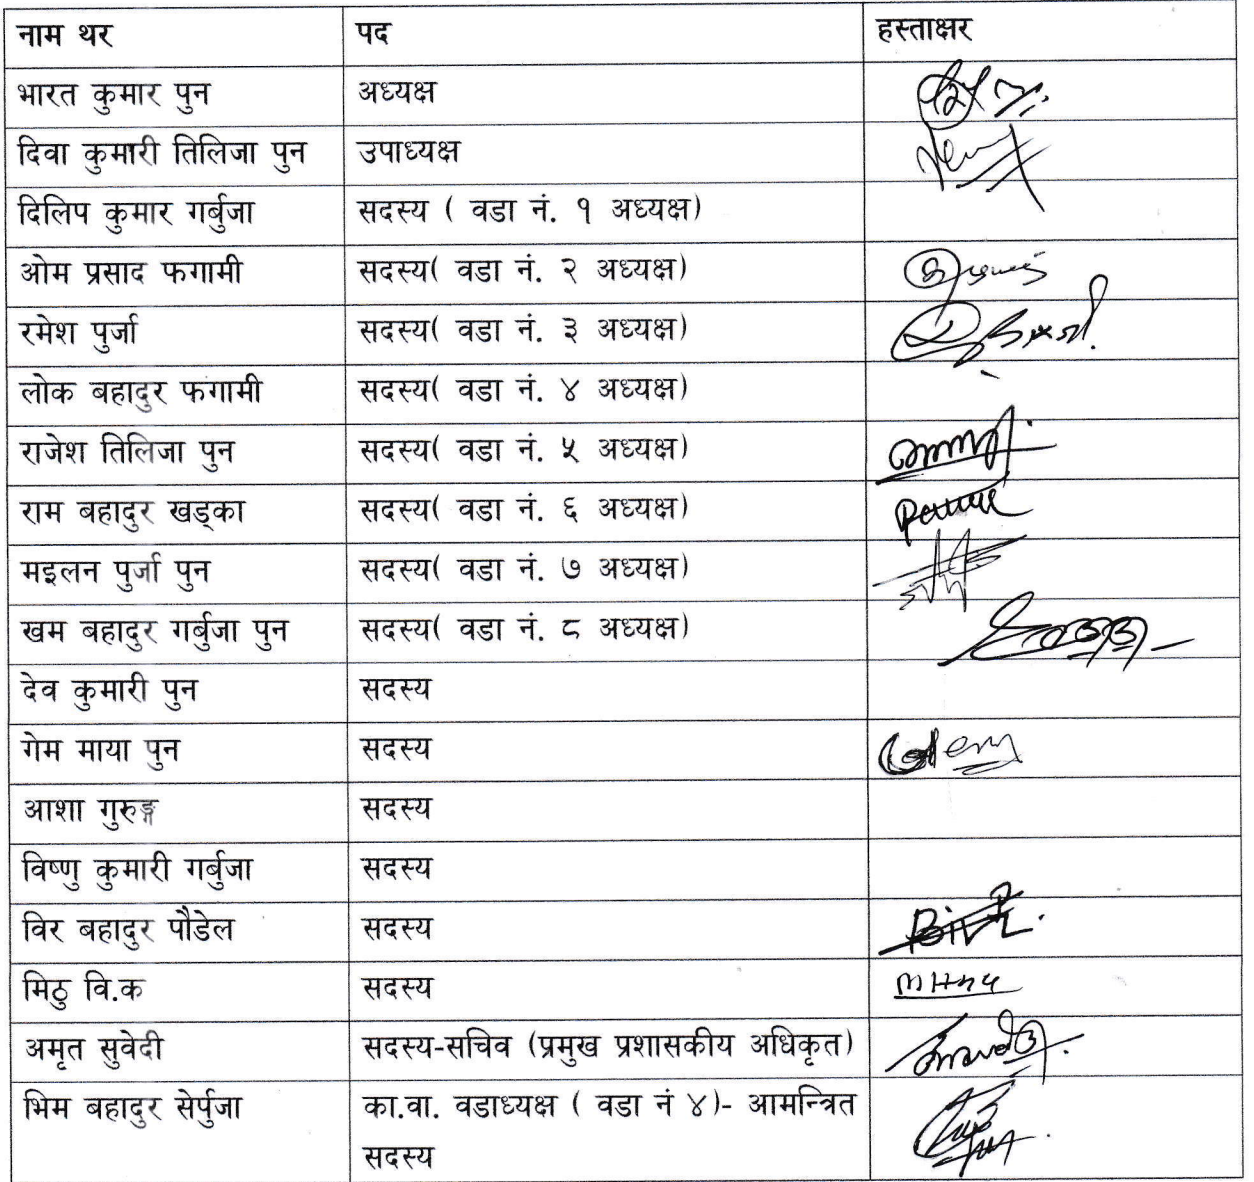 नाम थर पद हस्ताक्षर
भारत कुमार पुन अध्यक्ष
दिवा कुमारी तिलिजा पुन उपाध्यक्ष
दिलिप कुमार गर्बुजा सदस्य ( वडा नं. १ अध्यक्ष)
ओम प्रसाद फगामी सदस्य( वडा नं. २ अध्यक्ष)
रमेश पुर्जा सदस्य( वडा नं. ३ अध्यक्ष)
लोक बहादुर फगामी सदस्य( वडा नं. ४ अध्यक्ष)
राजेश तिलिजा पुन सदस्य( वडा नं. ५ अध्यक्ष)
राम बहादुर खड्का सदस्य( वडा नं. ६ अध्यक्ष)
मइलन पुर्जा पुन सदस्य( वडा नं. ७ अध्यक्ष)
खम बहादुर गर्बुजा पुन सदस्य( वडा नं. ८ अध्यक्ष)
देव कुमारी पुन सदस्य
गेम माया पुन सदस्य
आशा गुरुङ्ग सदस्य
विष्णु कुमारी गर्बुजा सदस्य
विर बहादुर पौडेल सदस्य
मिठु वि.क सदस्य
अमृत सुवेदी सदस्य-सचिव (प्रमुख प्रशासकीय अधिकृत)
भिम बहादुर सेर्पुजा का.वा. वडाध्यक्ष ( वडा नं ४)- आमन्त्रित
सदस्य